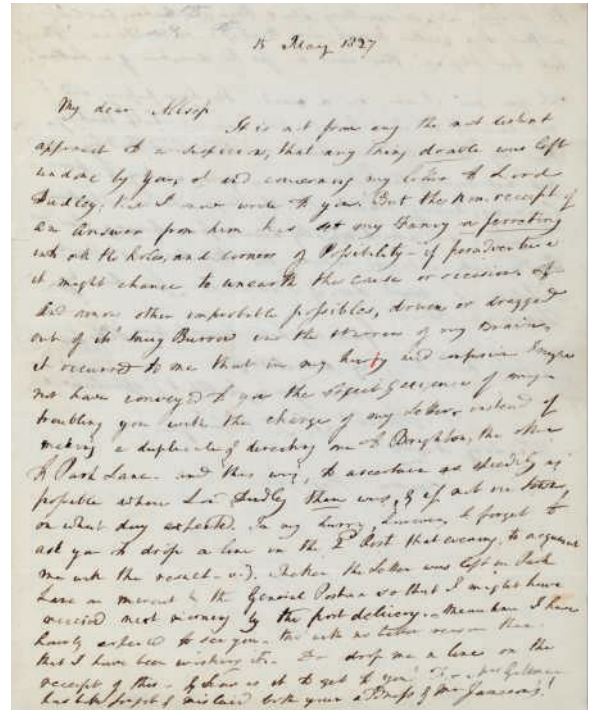 15 May 1827
My dear Allsop
It is not from any the most distant
approach to a suspicion, that any thing doable was left
undone by you, of and concerning my letter to Lord
Dudley, that I now write to you. But the non-receipt of
an answer from him has set my Fancy a ferreting
into all the holes, and corners of Possibility - if peradventure
it might chance to unearth the cause or occasion of
And among other improbable possibles, driven or dragged
out of its snug Burrow in the Warren of my Brain,
it occurred to me that in my hurry and confusion I might
not have conveyed to you the
troubling you with the charge of my Letter, instead of
making a duplicate & directing one to Brighton, the other
to Park Lane. and this was, to ascertain as speedily as
possible where Lord Dudley then was, & if not in town,
on what day expected. In my hurry, however, I forgot to
ask you to drop a line in the 2d Post that evening, to acquaint
me with the result - viz. whether the Letter was left in Park
Lane or by the General Post - so that I might have
received next morning by the post delivery. - Meantime I have
hourly expected to see you - tho' with no better reason than
that I have been wishing it. - Do drop me a line on the
receipt of this - if so be it to get to you! For Mrs Gillman
has forgot & mislaid both your address & Mr Jameson's!